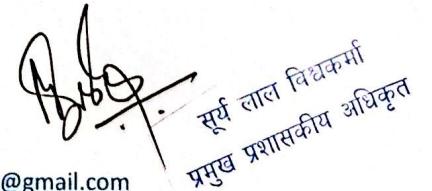 सूर्य लाल विश्वकर्मा
प्रमुख प्रशासकीय अधिकृत
@gmail.com